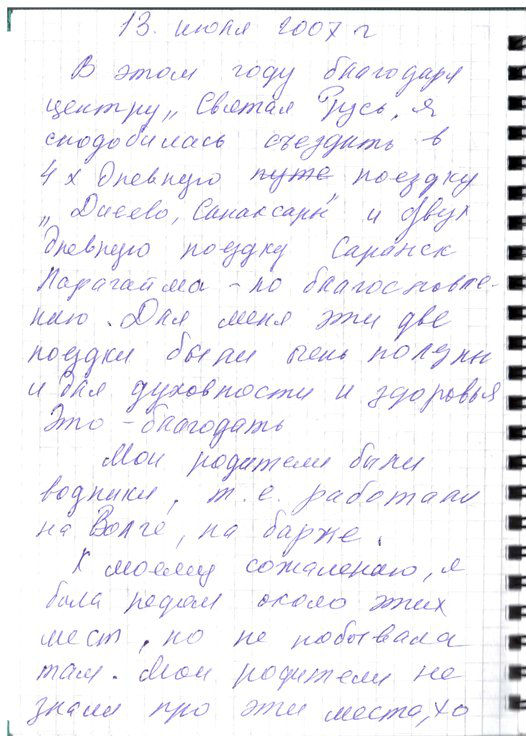 13. июня 2007 г
В этом году благодаря
центру „ Святая Русь, я
сподобилась съездить в
4х дневную путе поездку
„Дивево, Санаксары" и двух
дневную поездку Саранск
- по благословле-
нию. Для меня эти две
поездки были очень полезны
и для духовности и здоровья
Это - благодать
Мои родители были
водники, т.е. работали
на Волге, на барже.
К моему сожалению, я
была рядом около этих
мест, но не побывала
там. Мои родители не
знали про эти места, хо